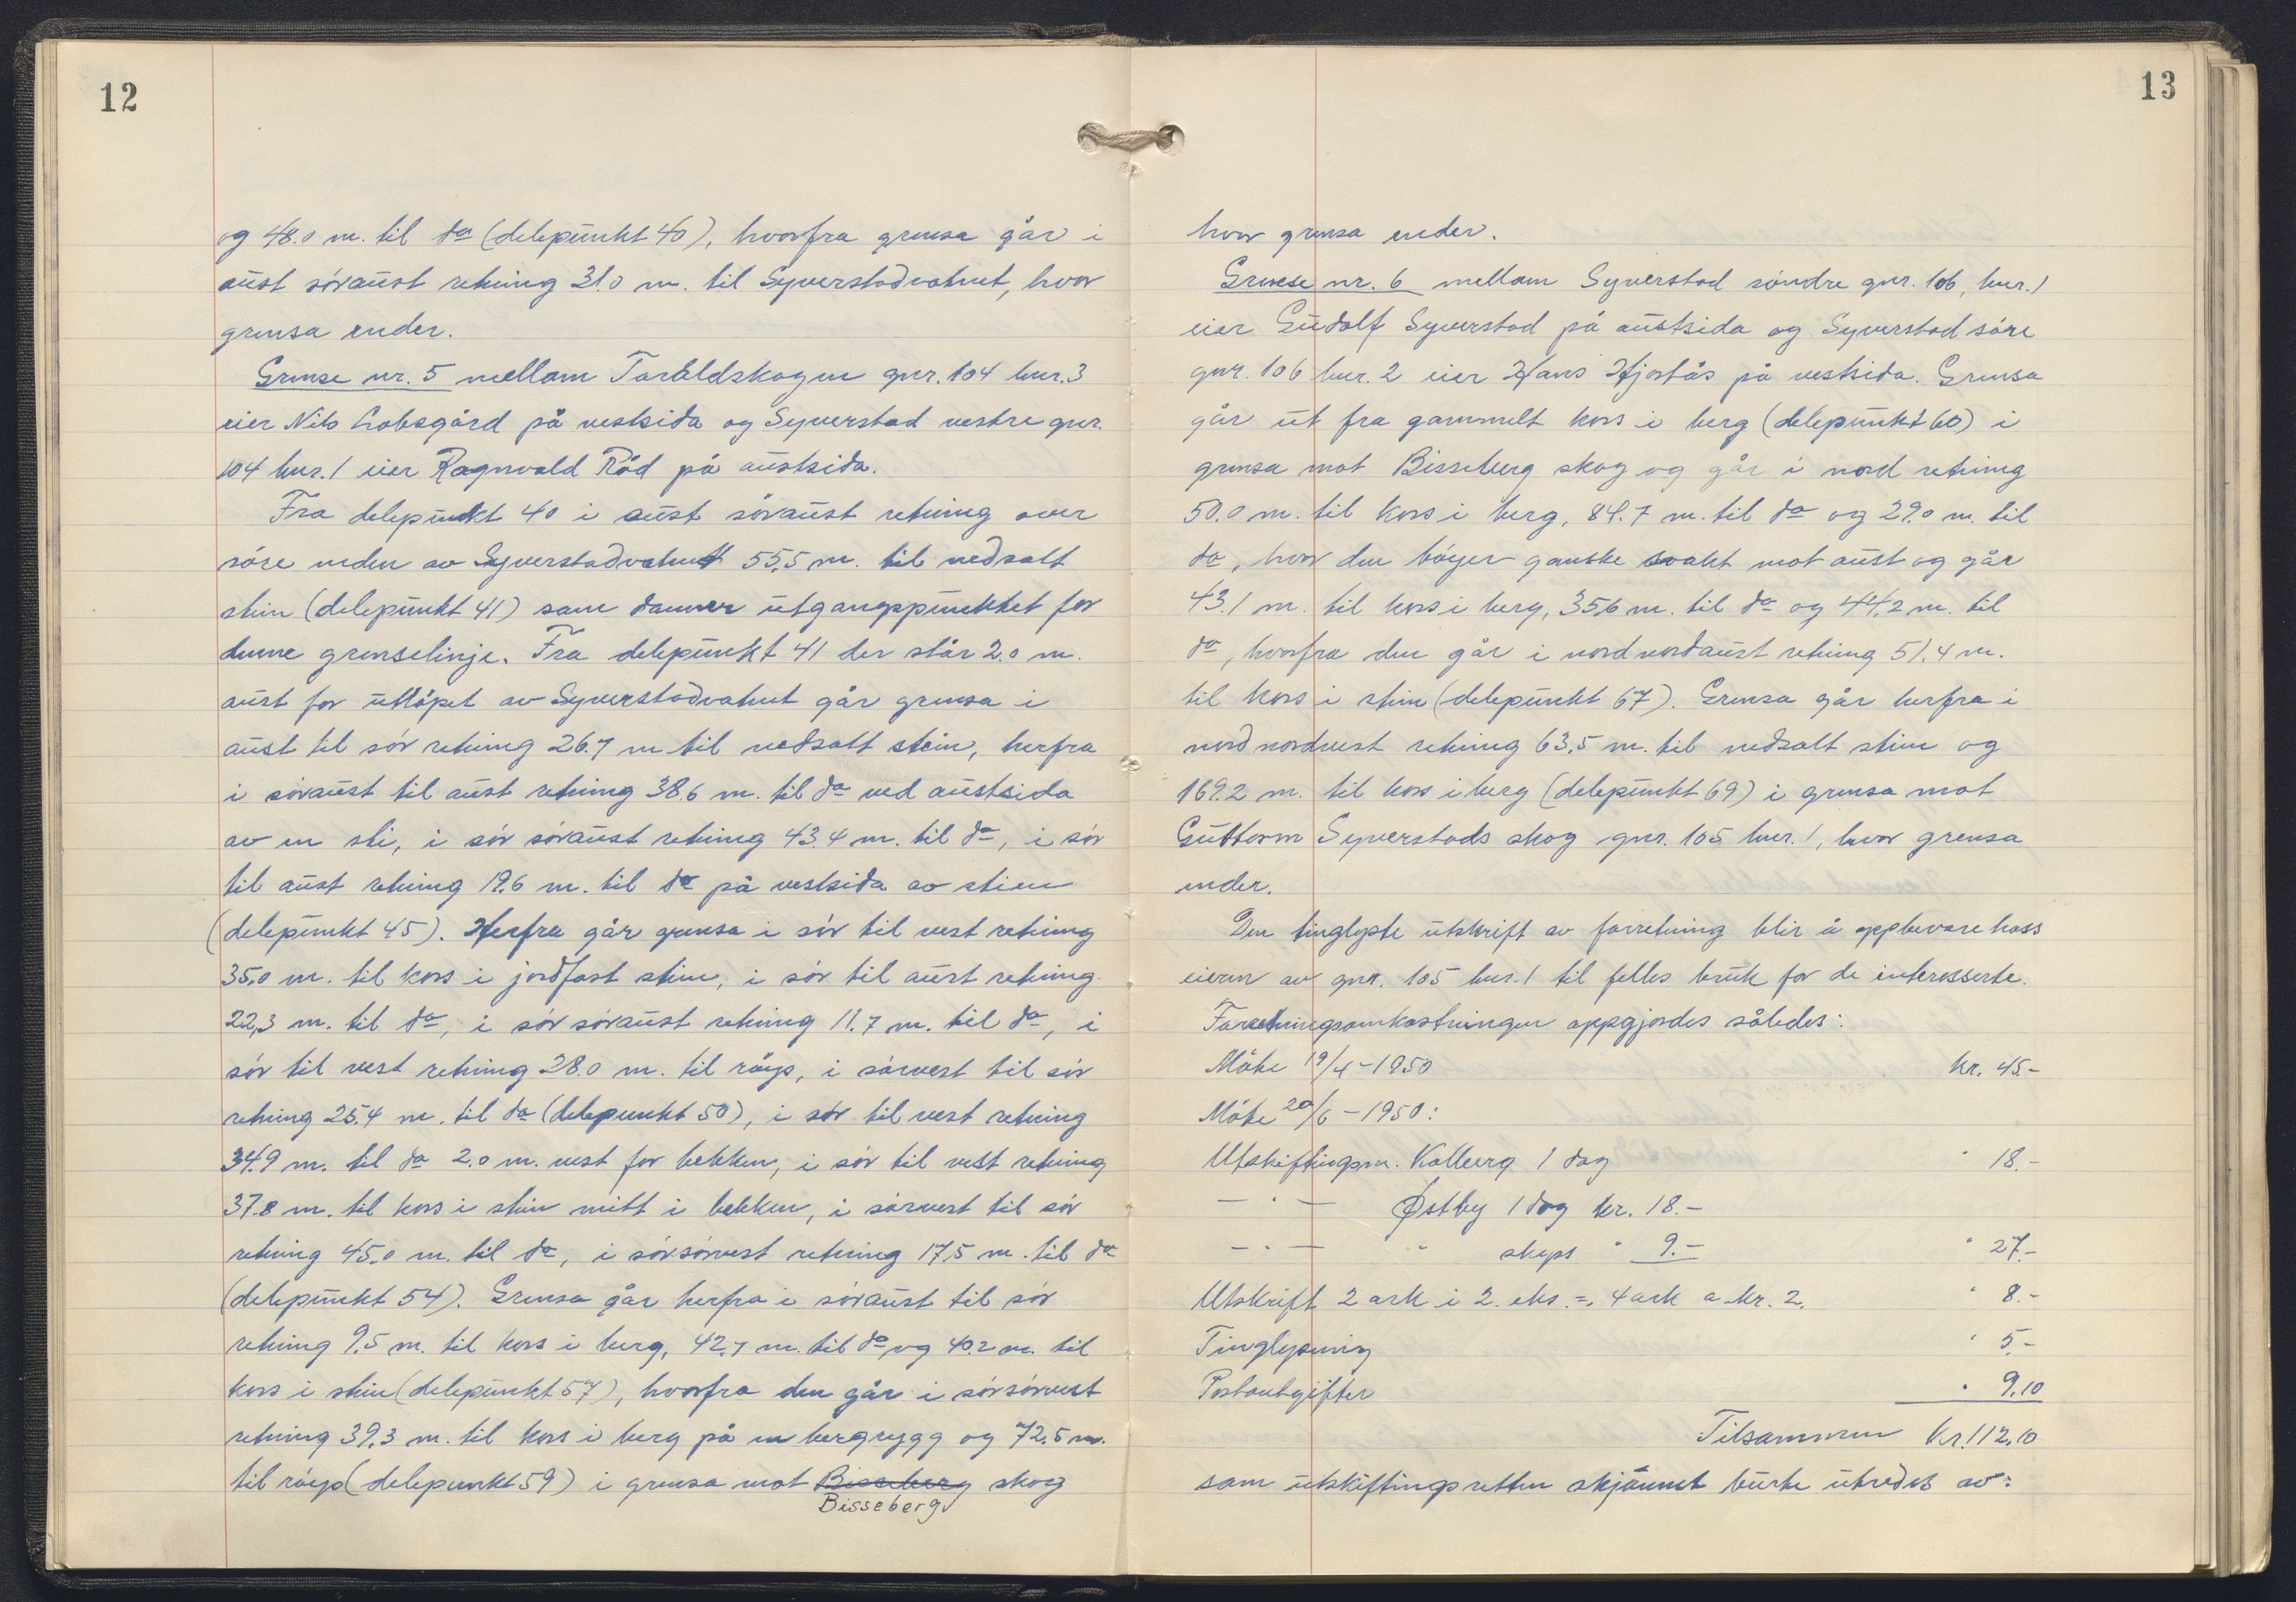 12
og 48.0 m. til do (delepunkt 40), hvorfra grensa går i
aust søraust retning 31.0 m. til Syverstadvatnet, hvor
grensa ender.
Grense nr. 5 mellom Taraldskogen gnr. 104 bnr. 3
eier Nils Lobsgård på vestsida og Syverstad vestre gnr.
104 bnr. 1 eier Ragnvald Röd på austsida.
Fra delepunkt 40 i aust søraust retning over
söre enden av Syverstadvatnet 55,5 m. til nedsatt
stein (delepunkt 41) som danner utgangspunktet for
denne grenselinje. Fra delepunkt 41 der står 2.0 m.
aust for utlöpet av Syverstadvatnet går grensa i
aust til sör retning 26.7 m til nedsatt stein, herfra
i söraust til aust retning 38.6 m. til do ved austsida
av en sti, i sör söraust retning 43.4 m. til do, i sör
til aust retning 19.6 m. til do på vestsida av stien
(delepunkt 45). Herfra går grensa i sör til vest retning
35.0 m. til kors i jordfast stein, i sör til aust retning
22,3 m. til do, i sör söraust retning 11.7 m. til do, i
sör til vest retning 28.0 m. til röys, i sörvest til sör
retning 25.4 m. til do (delepunkt 50), i sör til vest retning
34.9 m. til do 2.0 m. vest for bekken, i sör til vest retning
37.8 m. til kors i stein mitt i bekken, i sörvest til sör
retning 45.0 m. til do, i sörsörvest retning 17.5 m. til do
(delepunkt 54). Grensa går herfra i söraust til sör
retning 9.5 m. til kors i berg, 42.7 m. til do og 40.2 m. til
kors i stein (delepunkt 57), hvorfra den går i sörsörvest
retning 39.3 m. til kors i berg på en bergrygg og 72.5 m.
til röys (delepunkt 59) i grensa mot Bisseberg skog
Bisseberg
13
hvor grensa ender.
Grense nr. 6 mellom Syverstad söndre gnr. 106, bnr. 1
eier Gudolf Syverstad på austsida og Syverstad söre
gnr. 106 bnr. 2 eier Hans Hjortås på vestsida. Grensa
går ut fra gammelt kors i berg (delepunkt 60) i
grensa mot Bisseberg skog og går i nord retning
50.0 m. til kors i berg, 84.7 m. til do og 29.0 m. til
do, hvor den böyer ganske svakt mot aust og går
43.1 m. til kors i berg, 35.6 m. til do og 44.2 m. til
do, hvorfra den går i nordnordaust retning 51.4 m.
til kors i stein (delepunkt 67). Grensa går herfra i
nordnordvest retning 63.5 m. til nedsatt stein og
169.2 m. til kors i berg (delepunkt 69) i grensa mot
Guttorm Syverstads skog gnr. 105 bnr. 1, hvor grensa
ender.
Den tinglyste utskrift av forretning blir å oppbevare hoss
eieren av gnr. 105 bnr. 1 til felles bruk for de interesserte.
Forretningsomkostningen oppgjordes således:
Möte 19/4-1950 kr. 45.-
Möte 20/6-1950:
Utskiftingsm. Kolberg 1 dag " 18.-
— " — Østby 1 dag kr. 18.-
— " — " skyss " 9.- " 27.-
Utskrift 2 ark i 2. eks. =. 4 ark a kr. 2. " 8.-
Tinglysning " 5.-
Postoutgifter " 9.10
Tilsammen kr. 112.10
som utskiftingsretten skjönnet burte utredes av: